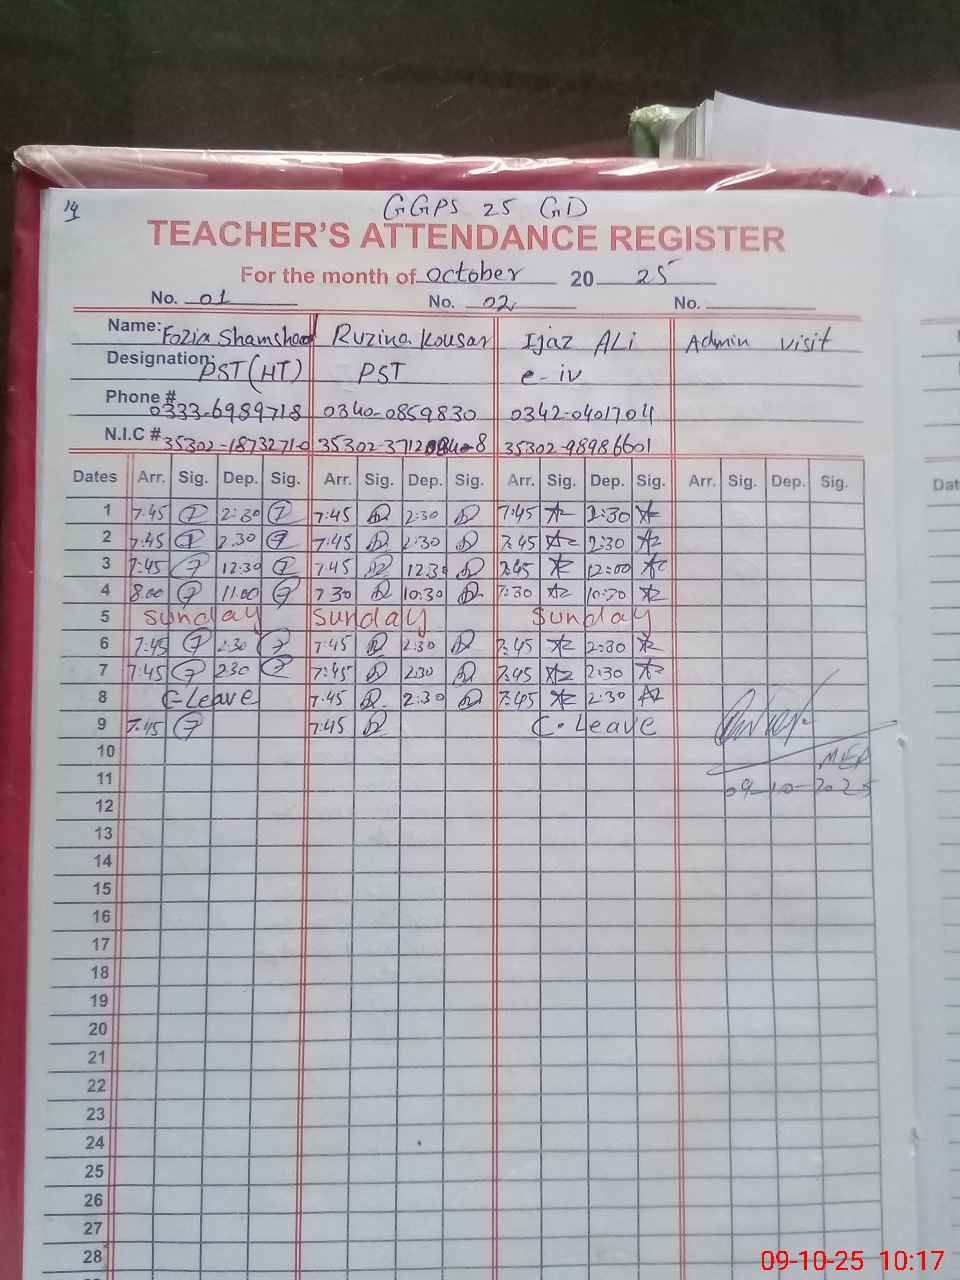 14
GGPS 25 GD
TEACHER'S ATTENDANCE REGISTER
For the month of October 20 25
No. 01 No. 02 No.
Name: Fozia Shamshad Ruzina Kousar Ijaz ALi Admin visit
Designation: PST(HT) PST e-iv
Phone # 0333-6989718 0340-0859830 0342-0401704
N.I.C # 35302-1873271-0 35302-3712 -8 35302-98986601
Dates Arr. Sig. Dep. Sig. Arr. Sig. Dep. Sig. Arr. Sig. Dep. Sig. Arr. Sig. Dep. Sig.
Dat
1 7:45 2:30 7:45 2:30 7:45 2:30
2 7:45 2.30 7:45 2:30 7:45 2:30
3 7:45 12:30 7:45 12:30 7:45 12:00
4 8:00 11:00 7:30 10:30 7:30 10:30
5 Sunday Sunday Sunday
6 7:45 2:30 7:45 2:30 7:45 2:30
7 7:45 230 7:45 2:30 7:45 2:30
8 C-Leave 7:45 2:30 7:45 2:30
9 7:45 7:45 C.Leave
10
MEA
11
09-10-2025
12
13
14
15
16
17
18
19
20
21
22
23
24
25
26
27
28
09-10-25 10:17